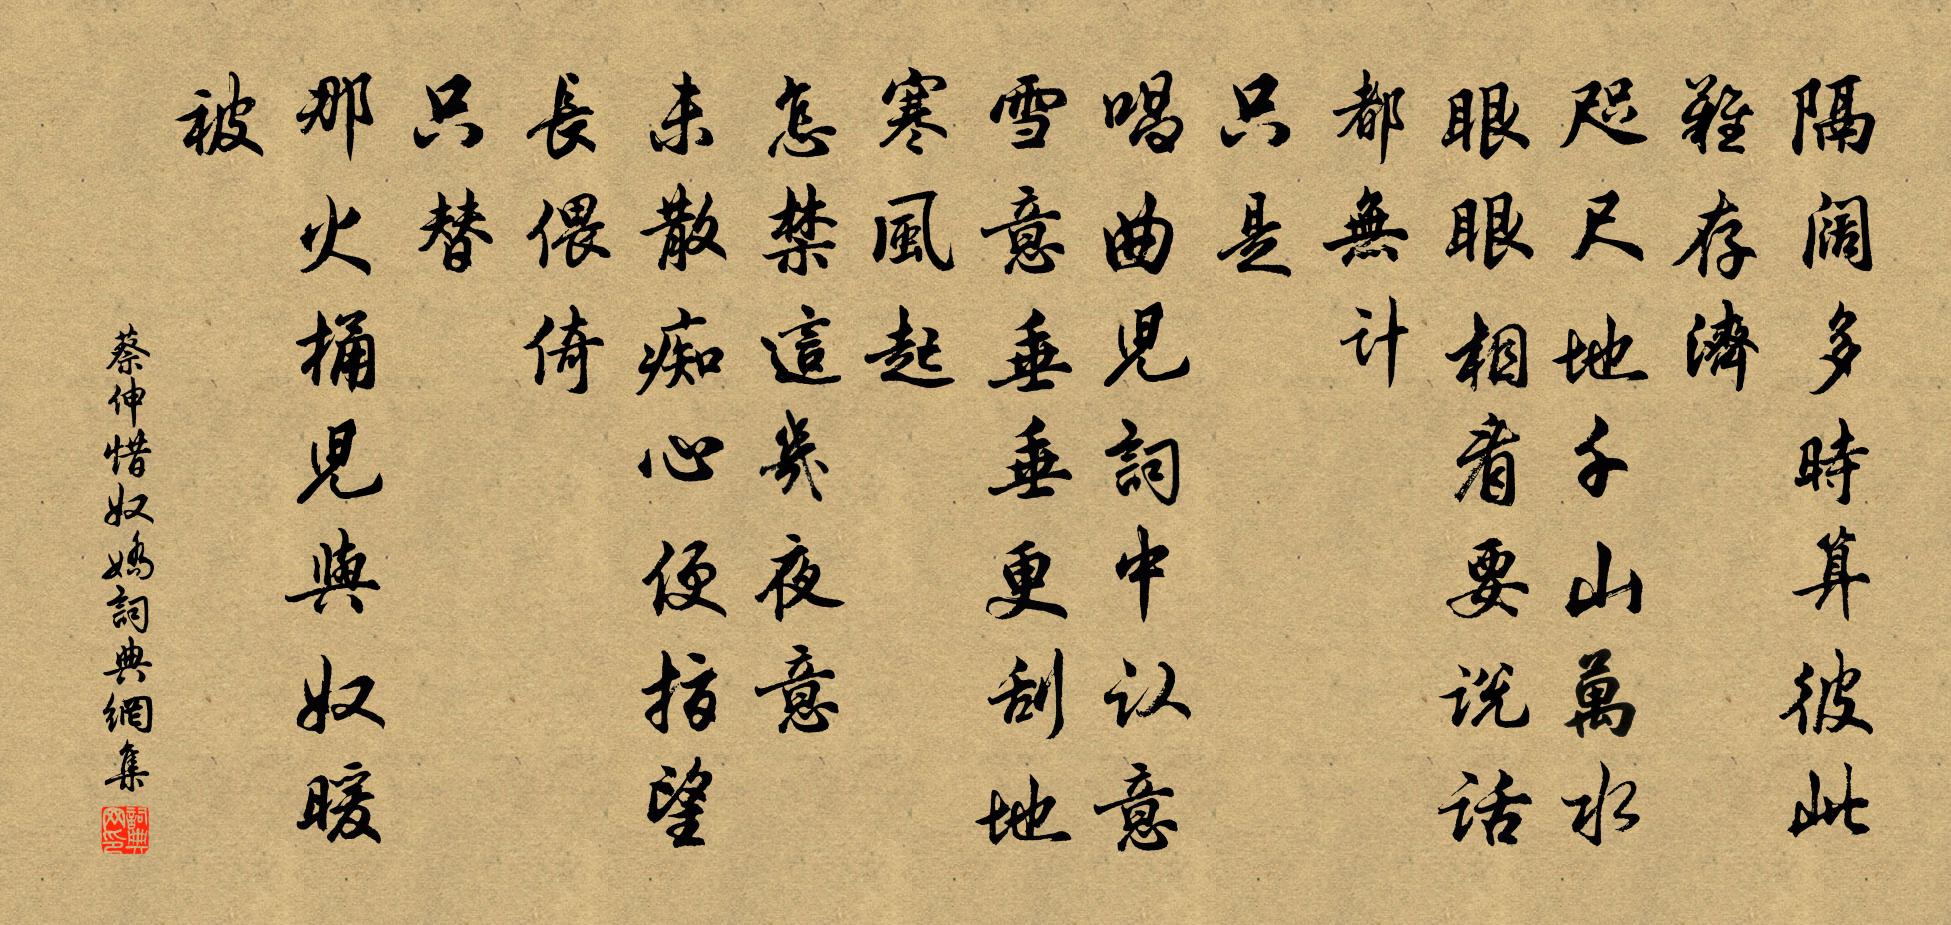 隔阔多時算彼此
難存濟
咫尺地千山萬水
眼眼相看要说话
都無计
只是
唱曲兒詞中认意
雪意垂垂更刮地
寒風起
怎禁這幾夜意
未散痴心便指望
長偎倚
只替
那火桶兒與奴暖
被
蔡伸惜奴嬌詞典網集
詞典网印